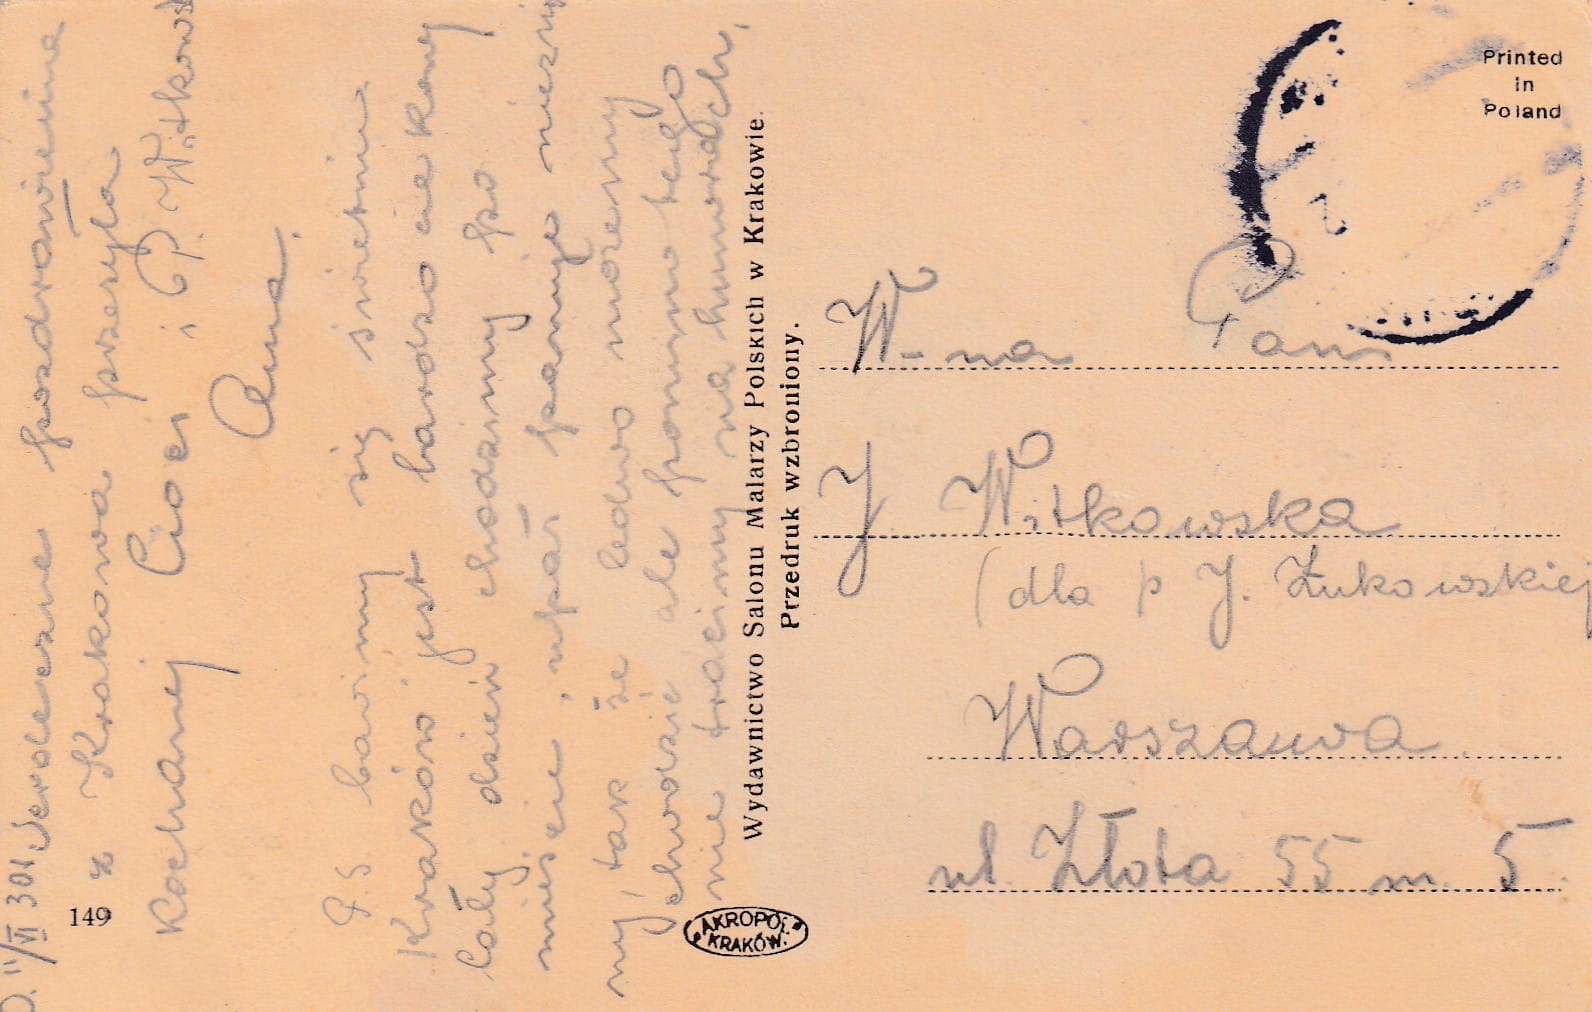 D. 11/VI 30r. Serdeczne pozdrowienia
z Krakowa przesyła
Kochanej Cioci i P.P. Witkowsk
Anna.
P.S bawimy się świetnie.
Kraków jest bardzo ciekawy
cały dzień chodzimy po
mieście, upał panuje niezno
my, tak że ledwo możemy
chodzić ale pomimo tego
nie tracimy na humorach,
149
Wydawnictwo Salonu Malarzy Polskich w Krakowie.
Przedruk wzbroniony.
AKROPOL
KRAKÓW.
Printed
in
Poland
W-na Pani
J. Witkowska
(dla p J. Żukowskiej
Warszawa.
ul. Złota 55 m. 5.